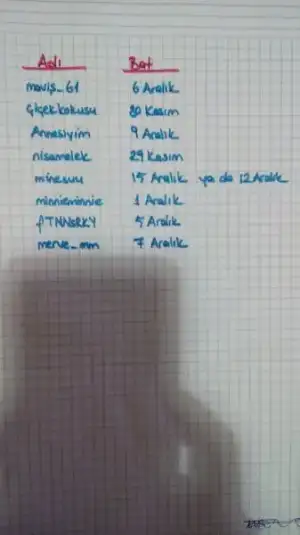 Adı Bat
maviş_61 6 Aralık
Çiçekkokusu 30 Kasım
Annesiyim 9 Aralık
nisamelek 29 Kasım
minesuu 15 Aralık ya da 12 Aralık
minnieminnie 1 Aralık
5 Aralık
merve_mm 7 Aralık